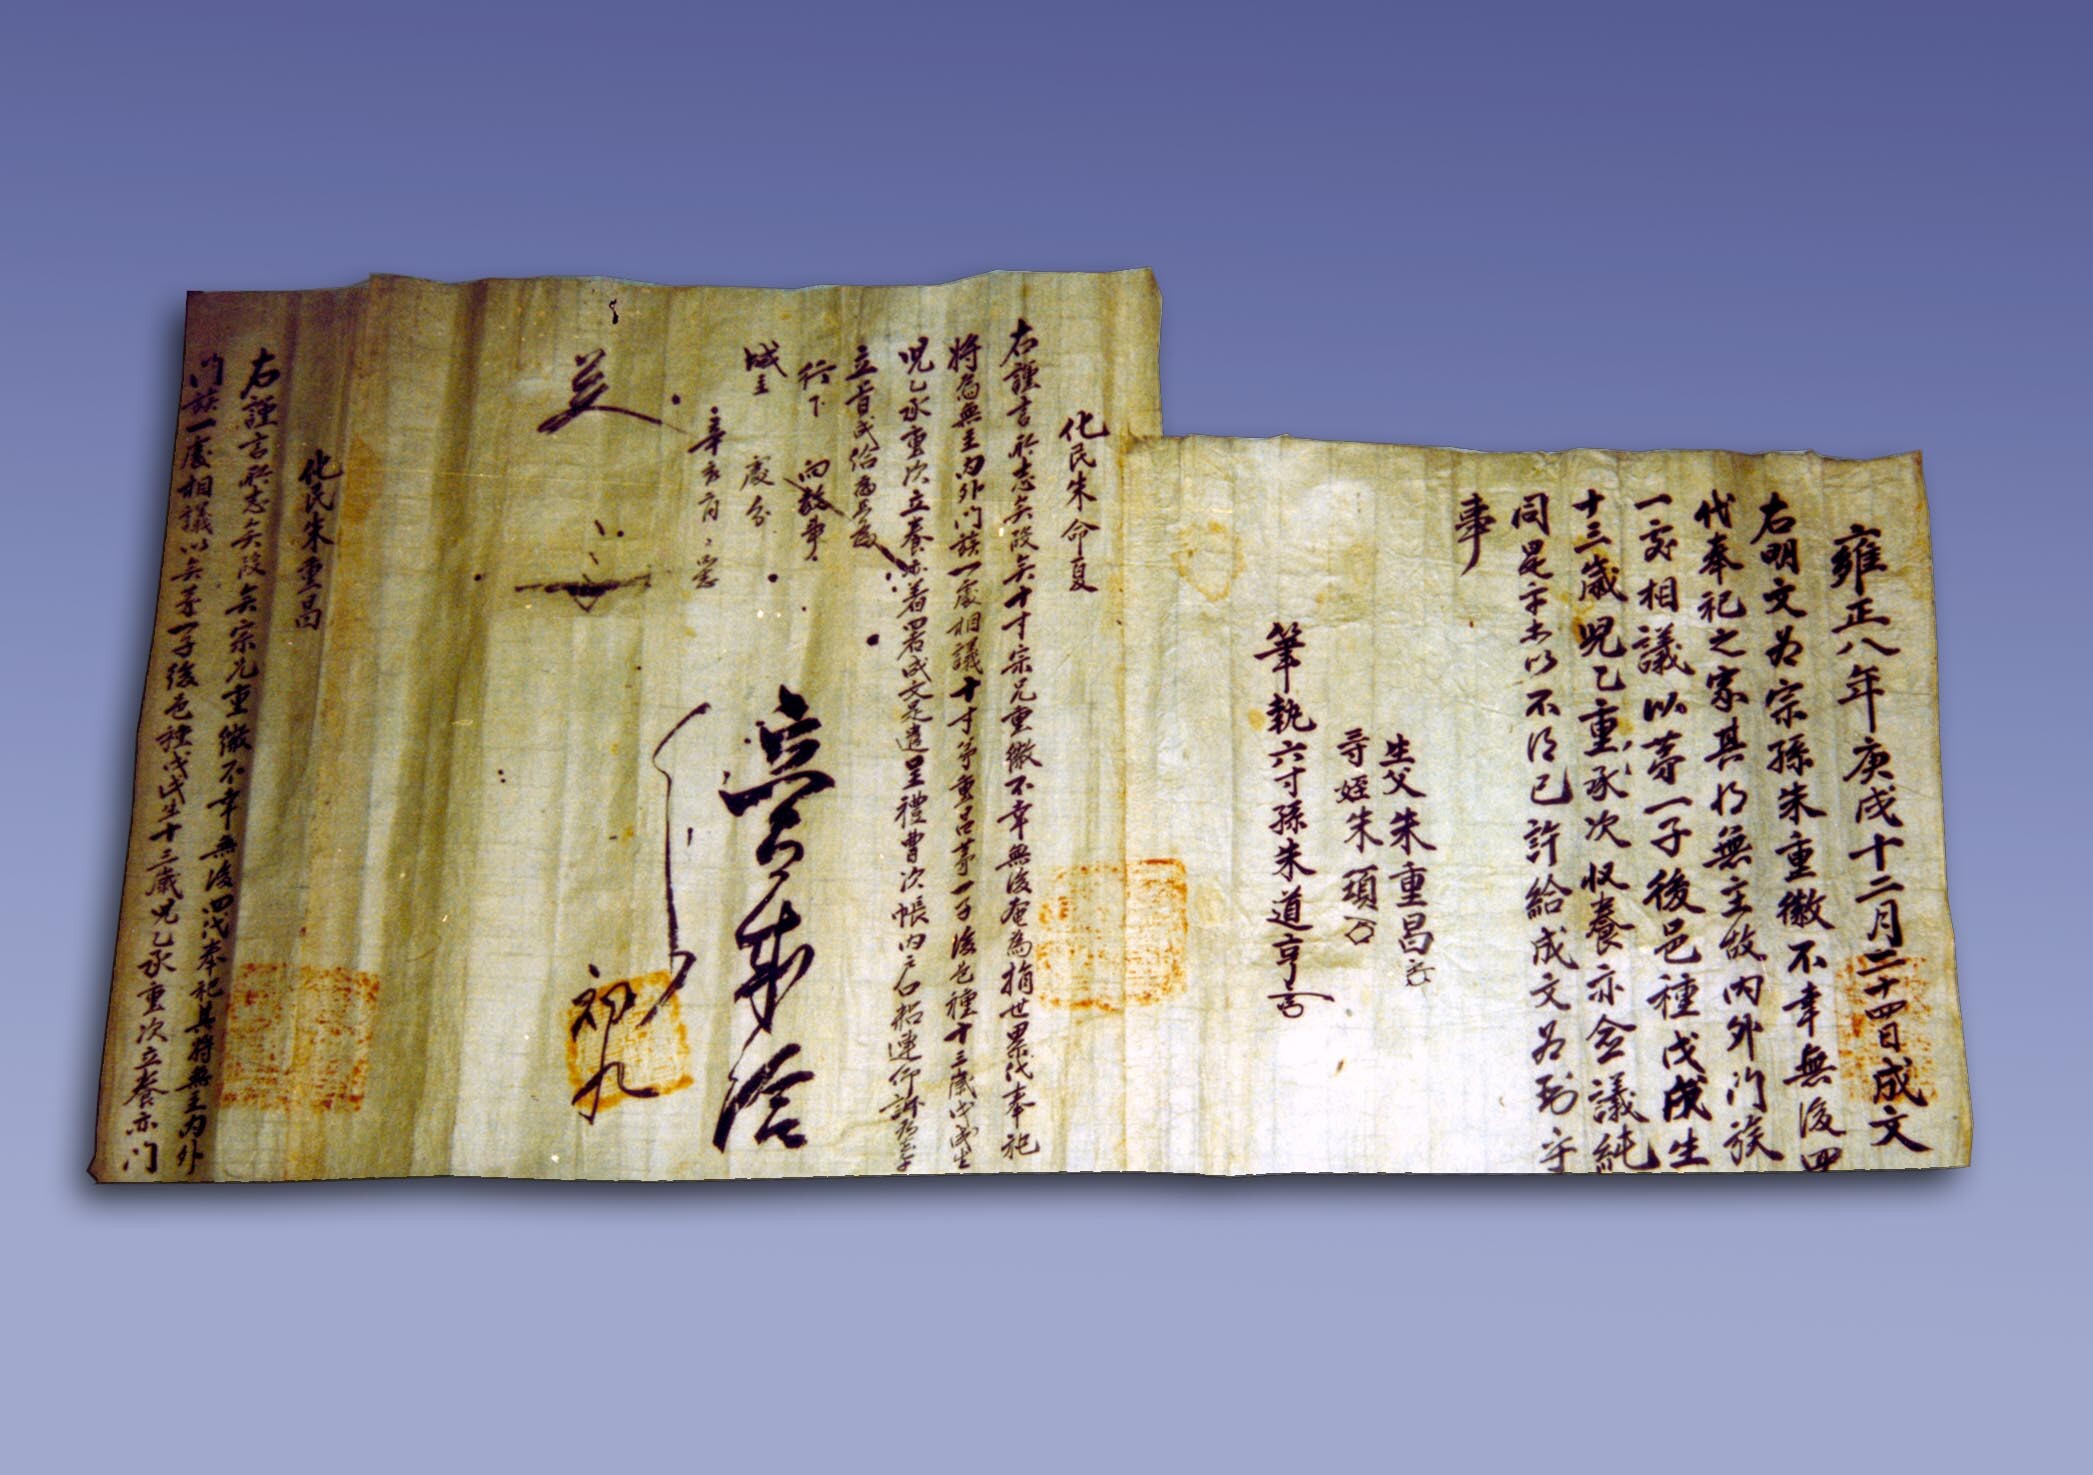 雍正八年庚戌十二月二十四日成文
右明文爲宗孫朱重徽不幸無後四
代奉祀之家其將無主故內外門族
一處相議以第一子後邑種戊戌生
十三歲兒乙重承次收養亦僉議純
同是乎以不得已許給成文爲
事
生父朱重昌
朱頊
筆執六寸孫朱道亨
化民朱命夏
右謹言所志矣段矣十寸宗兄重徽不幸無後奄爲捐世累代奉祀
將爲無主內外門族一處相議十寸弟重昌第一子後邑種十三歲戊戌生
兒乙承重次立養亦着署成文是遣呈禮曹次帳內戶口粘連仰訴爲
立旨成給爲
行下向敎事
城主 處分
辛亥二月 日
立旨成給
初九
化民朱重昌
右謹言所志矣段矣宗兄重徽不幸無後四代奉祀其將無主內外
門族一處相議以矣第一子後邑種戊戌生十三歲兒乙承重次立養亦門